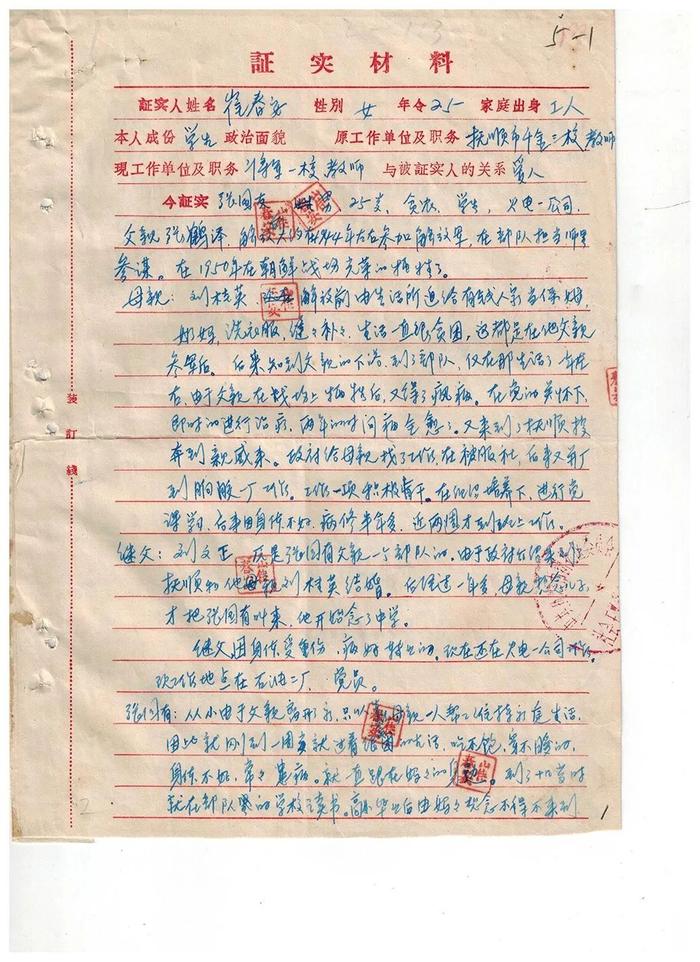 5-1
証实材料
証实人姓名 崔春实 性别 女 年令 25 家庭出身 工人
本人成份 学生 政治面貌 原工作单位及职务 抚顺市千金三校教师
现工作单位及职务 将军一校教师 与被証实人的关系 爱人
今証实 张国友 男 25岁,贫农,学生,火电一公司.
父亲张鹤泽,解放 在1944年左右参加解放军,在部队担当师里
参谋。在1950年在朝鲜战场光荣的牺牲了。
母亲:刘桂英 解放前由生活所迫给有钱人家当保姆,
奶妈,洗衣服,缝々补々.生活一直很贫困,这都是在他父亲
参军后。后来知到父亲的下落,到了部队,仅在那生活了 年左
右,由于父亲在战场上牺牲后,又得了疯病。在党的关怀下,
即时的进行治疗,两年的时间病全愈了。又来到了抚顺投
奔到亲戚来。政府给母亲找了工作,在被服社,后来又并
到 一厂工作。工作一项积极肯干。在 培养下,进行党
课学习,后来因身体不好,病休半年多,近两周才到班上工作。
继父:刘文正 是张国有父亲一个部队的。由于政府 来到
抚顺和他母亲刘桂英结婚。后经过一年多,母亲想念儿子
才把张国有叫来,他开始念了中学。
继父因身体受重伤,病好转业的。现在还在火电一公司工作。
现工作地点在石油二厂,党员。
张国有:从小由于父亲离形永,只以靠母亲一人帮工维持家庭生活,
因此就刚到一周岁就过着贫困的生活,吃不饱,穿不暖的,
身体不好,常々患病。就一直跟在妈々的身边。到了十四岁时
就在部队 的学校读书。高小毕业后由妈々想念不得不来到
装订线
1